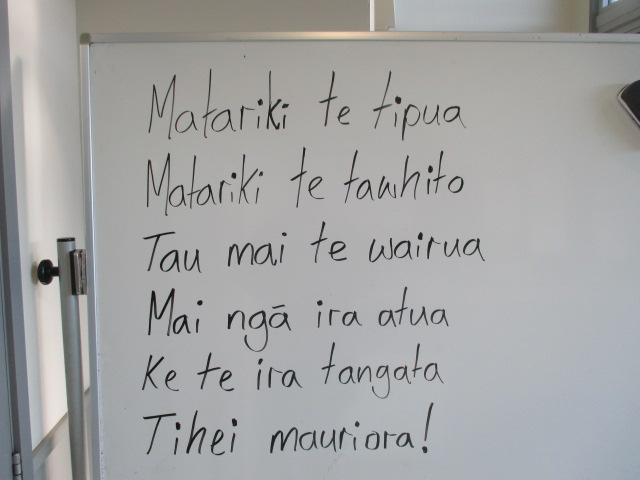 Matariki te tipua
Matariki te tawhito
Tau mai te wairua
Mai ngā ira atua
Ke te ira tangata
Tihei mauriora!